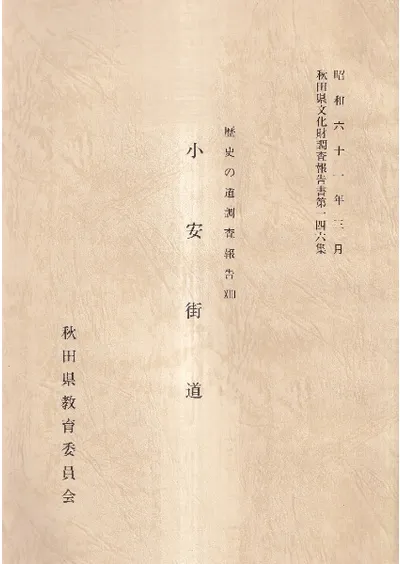 昭和六十一年三月
秋田県文化財調査報告書第一四六集
歴史の道調査報告XIII
小安街道
秋田県教育委員会